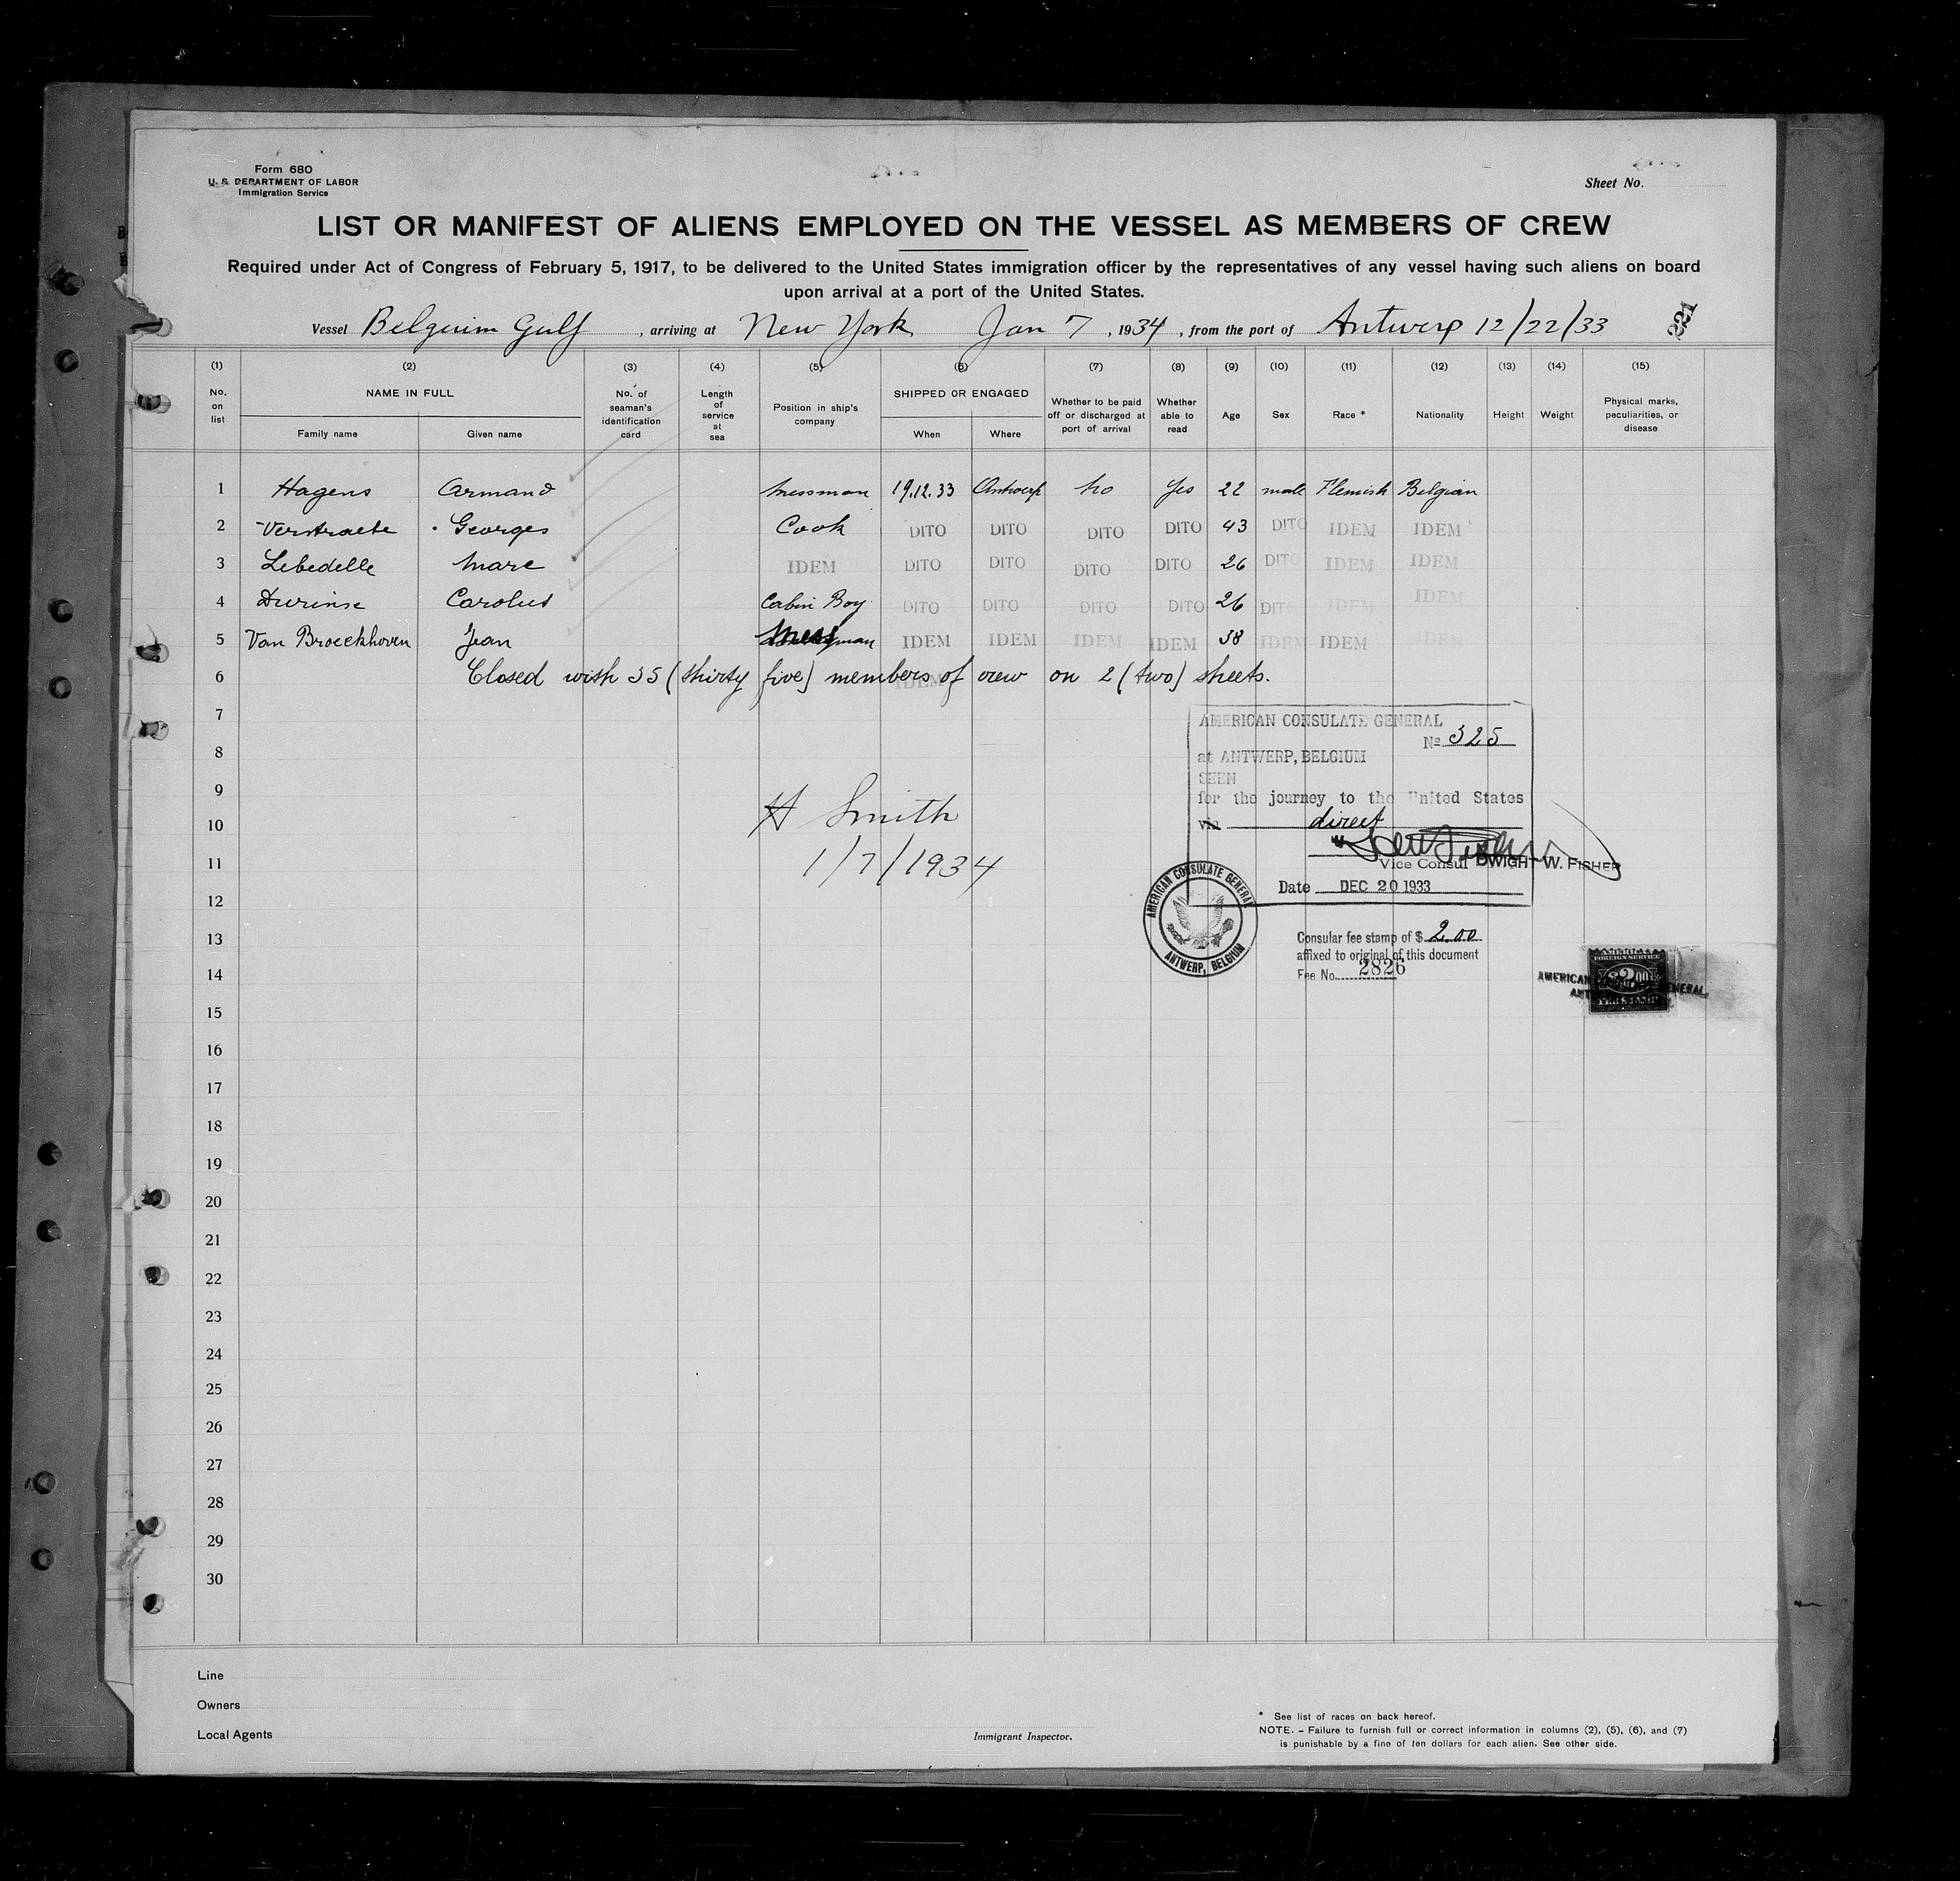 Form 680
U. S. DEPARTMENT OF LABOR
Immigration Service
Sheet No.
LIST OR MANIFEST OF ALIENS EMPLOYED ON THE VESSEL AS MEMBERS OF CREW
Required under Act of Congress of February 5, 1917, to be delivered to the United States immigration officer by the representatives of any vessel having such aliens on board
upon arrival at a port of the United States.
Vessel Belgium Gulf, arriving at New York Jan 7, 1934, from the port of Antwerp 12/22/33
221
(1) (2) (3) (4) (5) (6) (7) (8) (9) (10) (11) (12) (13) (14) (15)
No. on list
NAME IN FULL
Family name Given name
No. of seaman's identification card
Length of service at sea
Position in ship's company
SHIPPED OR ENGAGED
When Where
Whether to be paid off or discharged at port of arrival
Whether able to read
Age
Sex
Race *
Nationality
Height
Weight
Physical marks, peculiarities, or disease
1 Hagens Armand Messman 19.12.33 Antwerp No Yes 22 male Flemish Belgian
2 Verstraete Georges Cook DITO DITO DITO DITO 43 DITO IDEM IDEM
3 Lebedelle Marc IDEM DITO DITO DITO DITO 26 DITO IDEM IDEM
4 Durinse Carolus Cabin Boy DITO DITO DITO DITO 26 DITO IDEM IDEM
5 Van Broeckhoven Jean Messman IDEM IDEM IDEM IDEM 38 IDEM IDEM IDEM
6 Closed with 35 (thirty five) members of crew on 2 (two) sheets.
IDEM
7
8
9
10
11
12
13
14
15
16
17
18
19
20
21
22
23
24
25
26
27
28
29
30
H Smith
1/7/1934
AMERICAN CONSULATE GENERAL
No 325
at ANTWERP, BELGIUM
SEEN
for the journey to the United States
via direct
Vice Consul DWIGHT W. FISHER
Date DEC 20 1933
AMERICAN CONSULATE GENERAL
ANTWERP, BELGIUM
Consular fee stamp of $ 2.00
affixed to original of this document
Fee No. 2826
FOREIGN SERVICE
$2.00
FEE STAMP
AMERICAN CONSULATE GENERAL,
Line
Owners
Local Agents
Immigrant Inspector.
* See list of races on back hereof.
NOTE. – Failure to furnish full or correct information in columns (2), (5), (6), and (7)
is punishable by a fine of ten dollars for each alien. See other side.